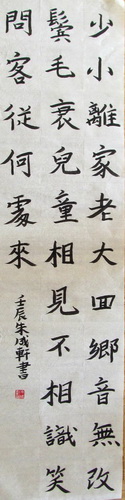 少小離家老大回鄉音無改
鬓毛衰兒童相見不相識笑
問客從何處來
壬辰朱成軒書